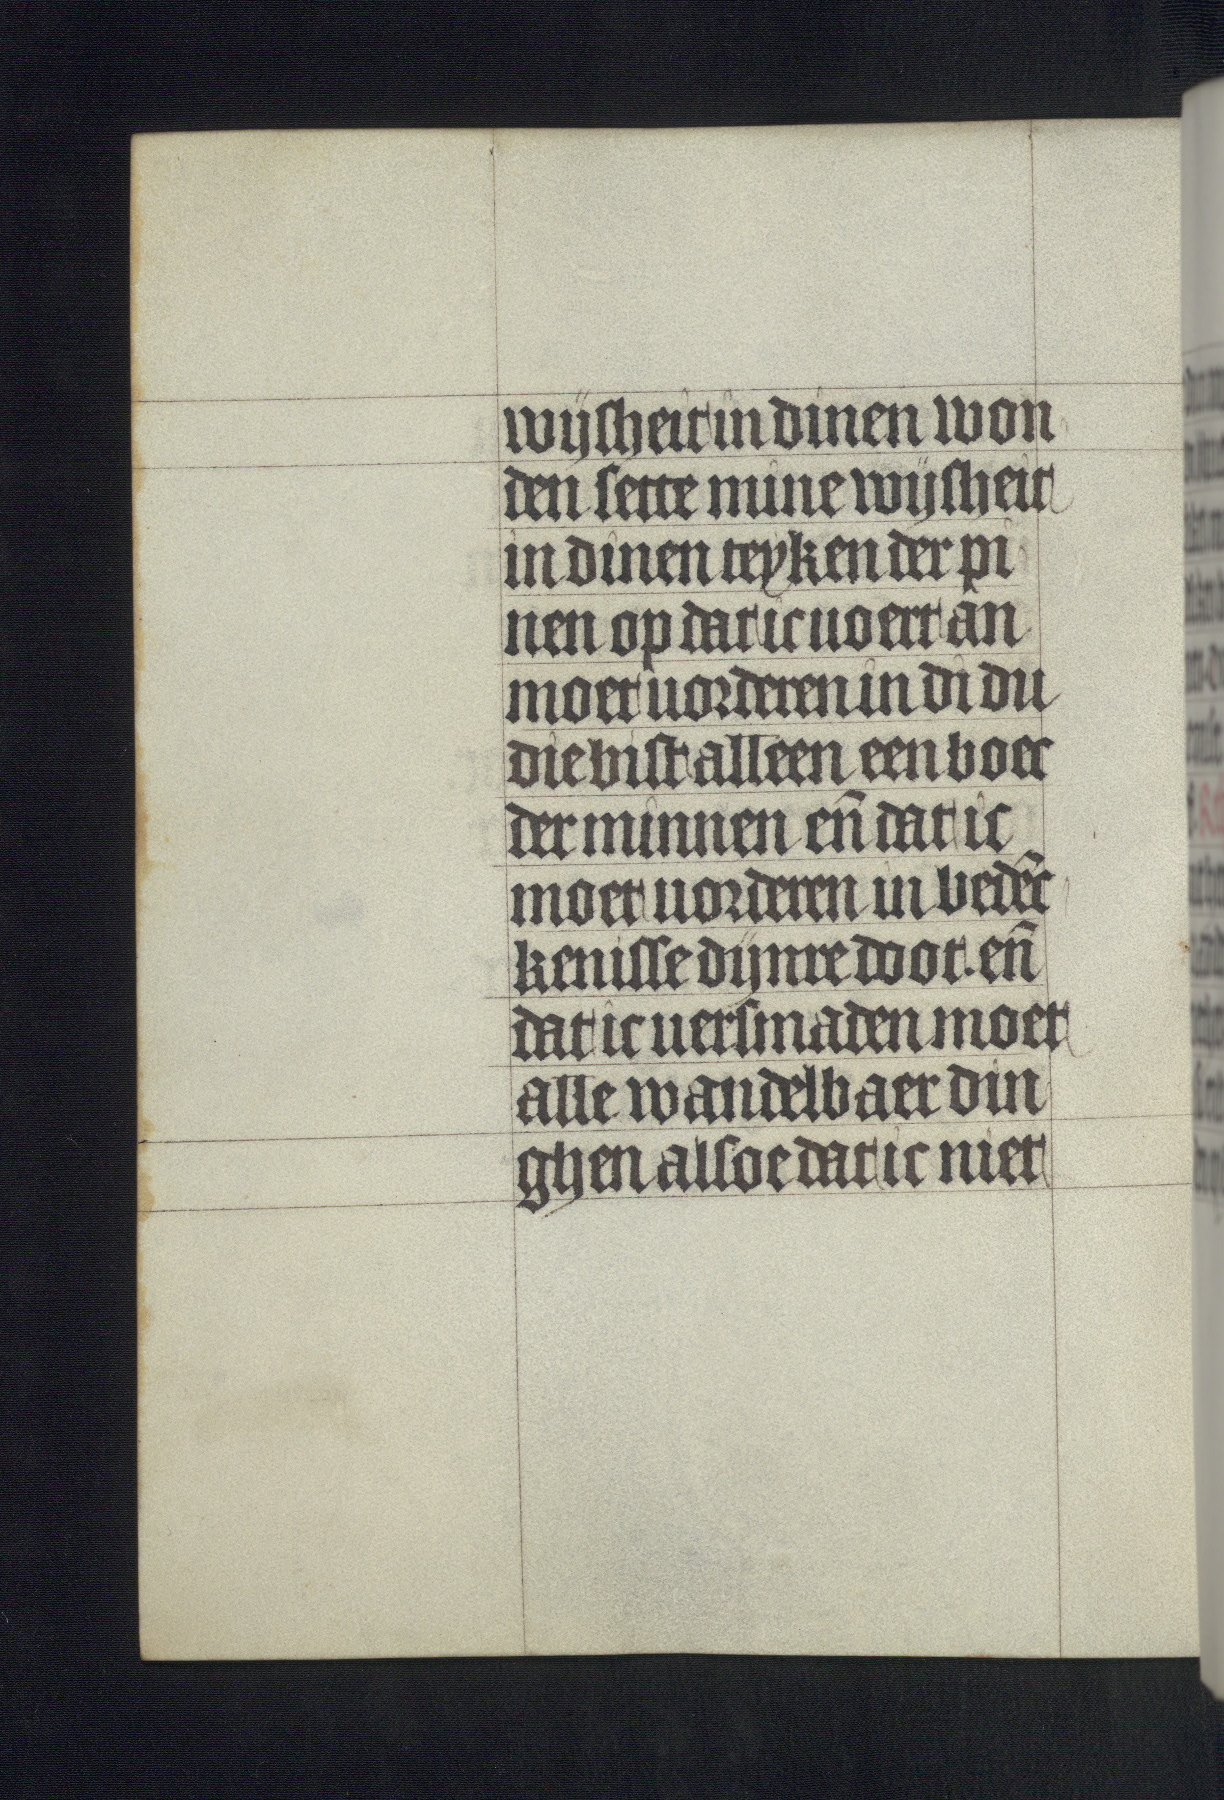 wijsheit in dinen won
den sette mine wijsheit
in dinen teyken der pi
nen op dat ic uoert an
moet uorderen in di du
die bist alleen een boec
der minnen en̄ dat ic
moet uorderen in bedēc
kenisse dijnre doot. en̄
dat ic uersmaden moet
alle wandelbaer din
ghen alsoe dat ic niet